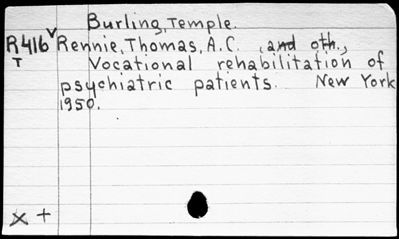 Burling, Temple.
R416v Rennie, Thomas, A.C. , and oth.,
T Vocational rehabilitation of
psychiatric patients. New York
1950.
x +